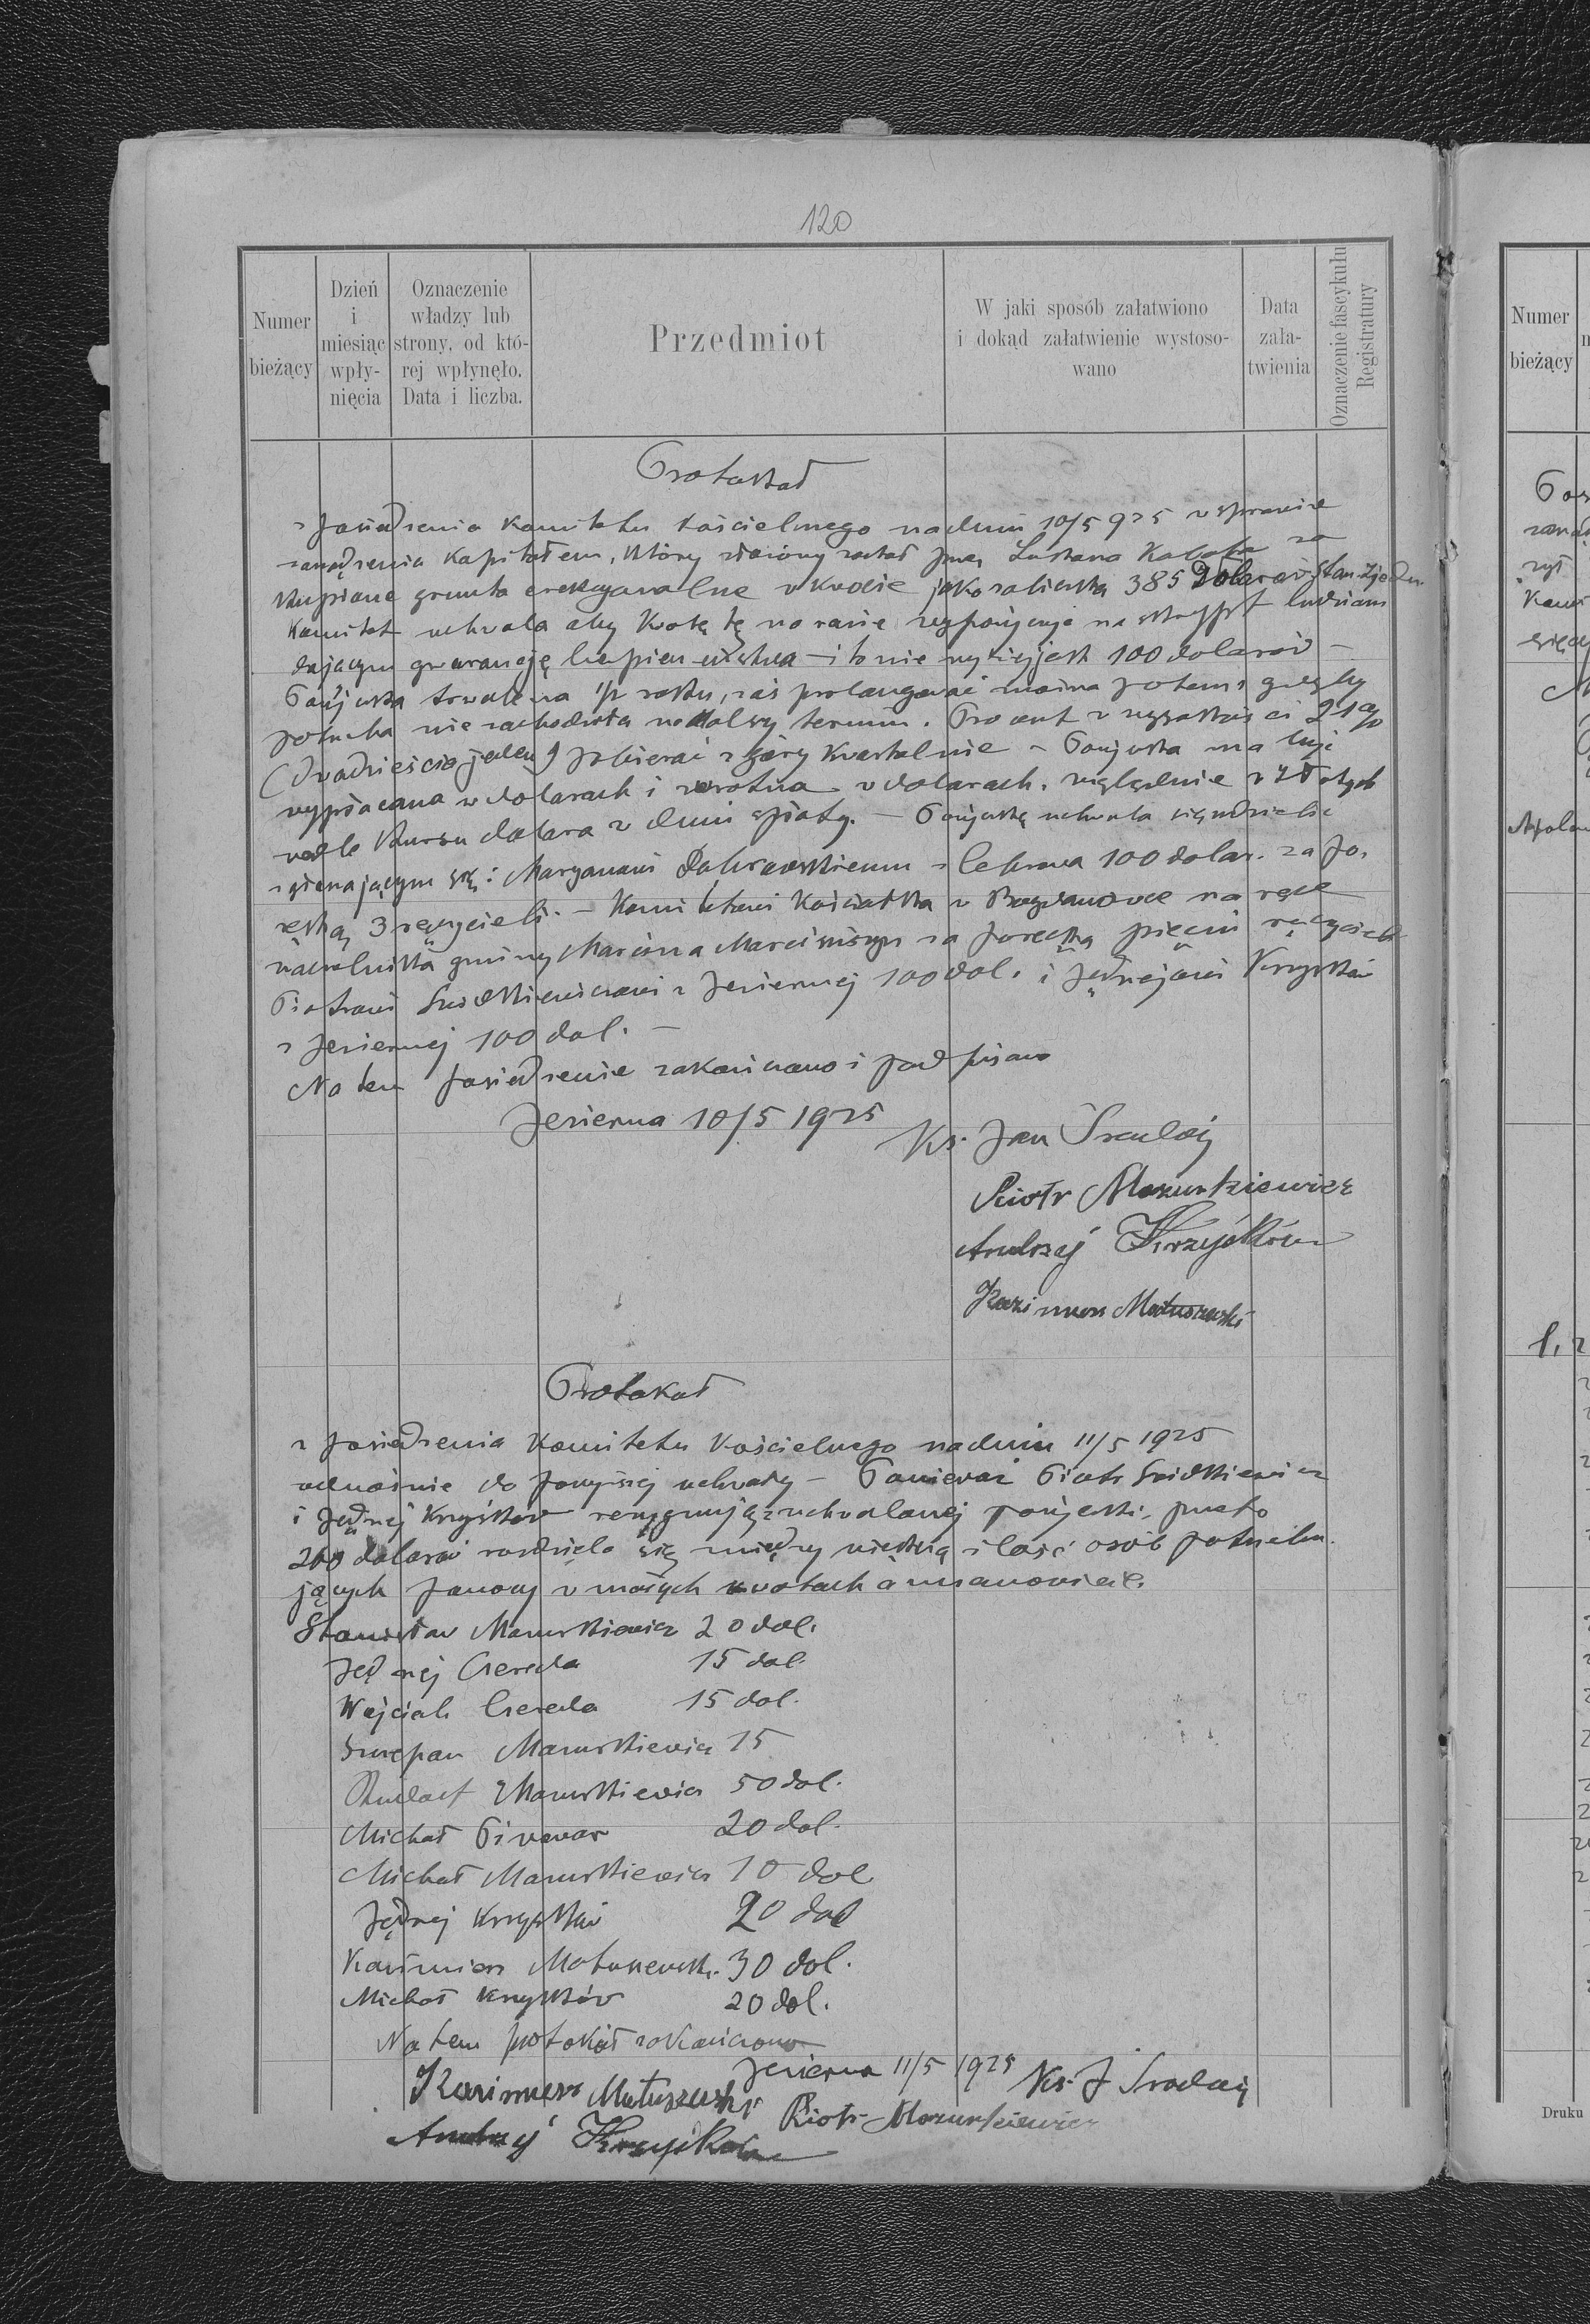 120
Numer
bieżący
Dzień
i
miesiąc
wpły-
nięcia
Oznaczenie
władzy lub
strony, od któ-
rej wpłynęło.
Data i liczba.
Przedmiot
W jaki sposób załatwiono
i dokąd załatwienie wystoso-
wano
Data
zała-
twienia
Oznaczenie fascykułu
Registratury
Protokół
z posiedzenia Komitetu kościelnego na dniu 10/5 925 w sprawie
zarządzenia kapitałem, który złożony został przez za
skupione grunta w kwocie jako zaliczka 385 Dolarów Stan. Zjedn.
Komitet uchwala aby kwotę tę na razie na skrypt ludziom
dającym gwarancję bezpieczeństwa – i to nie wyżej jest 100 dolarów –
Pożyczka trwale na 1/2 roku, zaś prolongować można potem, gdyby
potrzeba nie zachodziła na dalszy termin. Procent w wysokości 21%
(dwadzieścia jeden) pobierać z góry kwartalnie – Pożyczka ma być
wypłacana w dolarach i zwrotna w dolarach, względnie w złotych
wedle kursu dolara w dniu spłaty. – Pożyczkę uchwala się udzielić
zgłaszającym się: Marjanowi Dąbrowskiemu z 100 dolar. za po-
ręką 3 ręczycieli. – Komitetowi Kościółka w Bogdanówce na ręce
naczelnika gminy Marcina za poręką pięciu ręczycieli
Piotrowi z Jeziernej 100 dol. i Jędrzejowi Krzyśków
z Jeziernej 100 dol. –
Na tem posiedzenie zakończono i podpisano
Jezierna 10/5 1925
Ks. Jan
Piotr Mazurkiewicz
Andrzej Krzyśków
Kazimierz Matuszewski
Protokół
z posiedzenia Komitetu kościelnego na dniu 11/5 1925
odnośnie do powyższej uchwały – Ponieważ Piotr
i Jędrzej Krzyśków rezygnują z uchwalonej pożyczki, przeto
200 dolarów rozdziela się między większą ilość osób potrzebu-
jących pomocy w małych kwotach a mianowicie.
Stanisław Mazurkiewicz 20 dol.
Jędrzej Czereda 15 dol.
Wojciech Czereda 15 dol.
Szczepan Mazurkiewicz 15
Rudolf Mazurkiewicz 50 dol.
Michał Piwowar 20 dol.
Michał Mazurkiewicz 10 dol
Jędrzej Krzyśków 20 dol
Kazimierz Matuszewski 30 dol.
Michał Krzyśków 20 dol.
Na tem protokół zakończono
Jezierna 11/5 1925 Ks. J
Kazimierz Matuszewski
Piotr Mazurkiewicz
Andrzej Krzyśków
Numer
bieżący
Druku